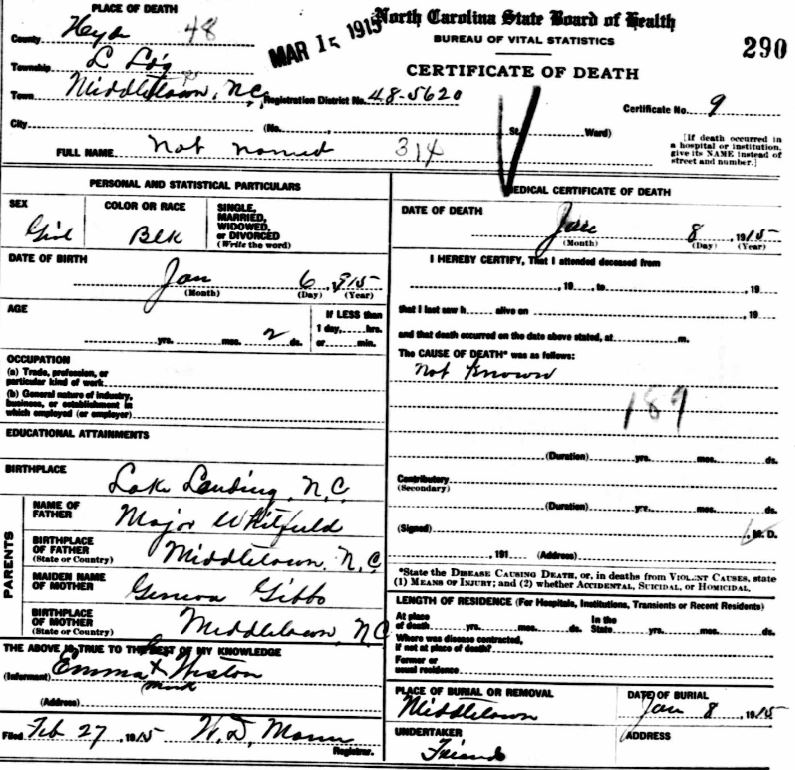 PLACE OF DEATH
County Hyde 48
MAR 15 1915
North Carolina State Board of Health
BUREAU OF VITAL STATISTICS
290
Township L Ldg
CERTIFICATE OF DEATH
Town Middletown, N.C. Registration District No. 48-5620
Certificate No. 9
City (No. , St. Ward)
[If death occurred in a hospital or institution, give its NAME instead of street and number.]
FULL NAME Not named 314
PERSONAL AND STATISTICAL PARTICULARS
SEX
Girl
COLOR OR RACE
Blk
SINGLE,
MARRIED,
WIDOWED,
or DIVORCED
(Write the word)
DATE OF BIRTH
Jan 6, 1915
(Month) (Day) (Year)
AGE
yrs. mos. 2 ds.
If LESS than
1 day, hrs.
or min.
OCCUPATION
(a) Trade, profession, or
particular kind of work
(b) General nature of industry,
business, or establishment in
which employed (or employer)
EDUCATIONAL ATTAINMENTS
BIRTHPLACE
Lake Landing, N.C.
PARENTS
NAME OF
FATHER
Major Whitfield
BIRTHPLACE
OF FATHER
(State or Country)
Middletown, N.C
MAIDEN NAME
OF MOTHER
Geneva Gibbs
BIRTHPLACE
OF MOTHER
(State or Country)
Middletown, NC
THE ABOVE IS TRUE TO THE BEST OF MY KNOWLEDGE
(Informant) Emma x Weston
mark
(Address)
Filed Feb 27, 1915 W. D. Mann
Registrar.
MEDICAL CERTIFICATE OF DEATH
DATE OF DEATH
Jan 8, 1915
(Month) (Day) (Year)
I HEREBY CERTIFY, That I attended deceased from
, 19 , to , 19
that I last saw h alive on , 19
and that death occurred on the date above stated, at m.
The CAUSE OF DEATH* was as follows:
Not Known
189
(Duration) yrs. mos. ds.
Contributory
(Secondary)
(Duration) yrs. mos. ds.
(Signed) , M. D.
, 191 (Address)
*State the DISEASE CAUSING DEATH, or, in deaths from VIOLENT CAUSES, state
(1) MEANS OF INJURY; and (2) whether ACCIDENTAL, SUICIDAL, or HOMICIDAL.
LENGTH OF RESIDENCE (For Hospitals, Institutions, Transients or Recent Residents)
At place
of death yrs. mos. ds. In the State yrs. mos. ds.
Where was disease contracted,
if not at place of death?
Former or
usual residence
PLACE OF BURIAL OR REMOVAL
Middletown
DATE OF BURIAL
Jan 8, 1915
UNDERTAKER
Friends
ADDRESS